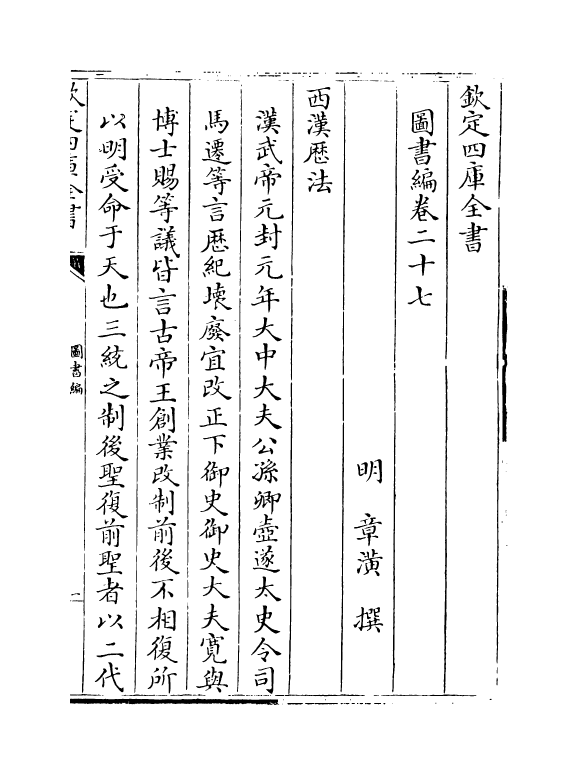 欽定四庫全書
圖書編卷二十七
明 章潢 撰
西漢厯法
漢武帝元封元年大中大夫公孫卿壺遂太史令司
馬遷等言厯紀壊廢宜改正下御史御史大夫寛與
博士賜等議皆言古帝王創業改制前後不相復所
以明受命于天也三統之制後聖復前聖者以二代
欽定四庫全書
圖書編
一